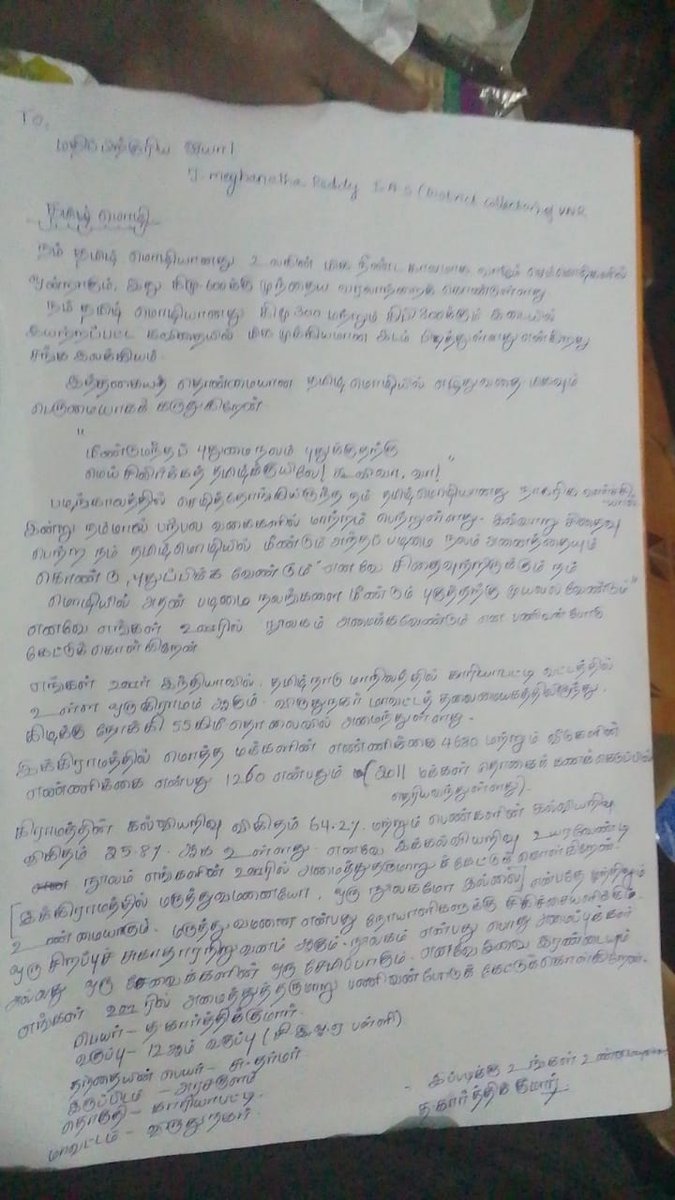 TO,
மதிப்பிற்குரிய ஐயா!
J. Meghanatha Reddy I.A.S (District collector) of VNR
தமிழ் மொழி
நம் தமிழ் மொழியானது உலகின் மிக நீண்ட காலமாக வாழும் செம்மொழிகளில்
ஒன்றாகும். இது கிமு முந்தைய வரலாற்றைக் கொண்டுள்ளது
நம் தமிழ் மொழியானது கிமு 300 மற்றும் கிபி 300க்கும் இடையில்
இயற்றப்பட்ட கவிதையில் மிக முக்கியமான இடம் பெற்றுள்ளது என்கிறது
சங்க இலக்கியம்.
இத்தகையத் தொண்மையான தமிழ் மொழியில் எழுதுவதை மிகவும்
பெருமையாகக் கருதுகிறேன்
" மீண்டுமந்தப் புதுமைநலம் புதுக்குதற்கு
மெய் சிலிர்க்கத் தமிழ்க்குயிலே! கூவிவா, வா! "
பழங்காலத்தில் செழித்தோங்கியிருந்த நம் தமிழ்மொழியானது நாகரிக
இன்று நம்மால் பற்பல வகைகளில் மாற்றம் பெற்றுள்ளது. இவ்வாறு சிதைவு
பெற்ற நம் தமிழ்மொழியில் மீண்டும் அந்தப் பழமை நலம் அனைத்தையும்
கொண்டு புதுப்பிக்க வேண்டும் எனவே சிதைவுற்றிருக்கும் நம்
மொழியில் அதன் பழமை நலங்களை மீண்டும் புகுத்தற்கு முயலல் வேண்டும்"
எனவே எங்கள் ஊரில் நூலகம் அமைக்கவேண்டும் என பணிவன்போடு
கேட்டுக் கொள்கிறேன்
எங்கள் ஊர் இந்தியாவில், தமிழ்நாடு மாநிலத்தில் காரியாபட்டி வட்டத்தில்
உள்ள ஒரு கிராமம் ஆகும். விருதுநகர் மாவட்டத் தலைமையகத்திலிருந்து,
கிழக்கு நோக்கி 55 கிமீ தொலைவில் அமைந்துள்ளது.
இக்கிராமத்தில் மொத்த மக்களின் எண்ணிக்கை 4680 மற்றும் வீடுகளின்
எண்ணிக்கை என்பது 1260 என்பதும் (2011 மக்கள் தொகைக் கணக்கெடுப்பில்
தெரியவந்துள்ளது).
கிராமத்தின் கல்வியறிவு விகிதம் 64.2% மற்றும் பெண்களின் கல்வியறிவு
விகிதம் 25.8% ஆக உள்ளது. எனவே இக்கல்வியறிவு உயரவேண்டி
நூலம் எங்களின் ஊரில் அமைத்துதருமாறு கேட்டுக் கொள்கிறேன்.
[இக்கிராமத்தில் மருத்துவமனையோ, ஒரு நூலகமோ இல்லை] என்பதே முற்றிலும்
உண்மையாகும். மருத்துவமனை என்பது நோயாளிகளுக்கு சிகிச்சையளிக்கும்
ஒரு சிறப்புச் சுகாதாரநிறுவனம் ஆகும். நூலகம் என்பது பொது அமைப்புக்கள்
அல்லது ஒரு சேவைக்களின் ஒரு சேமிப்பாகும். எனவே இவை இரண்டையும்
எங்கள் ஊரில் அமைத்துத்தருமாறு பணிவன்போடுக் கேட்டுக்கொள்கிறேன்.
பெயர் - த கார்த்திக்குமார்.
வகுப்பு - 12ஆம் வகுப்பு (சி.இ.ஓ.ஏ பள்ளி)
தந்தையின் பெயர் - சு. தர்மர்
இருப்பிடம் - அரசகுளம்
தொகுதி - காரியாபட்டி
மாவட்டம் - விருதுநகர்.
இப்படிக்கு உங்கள்
த கார்த்திக்குமார்